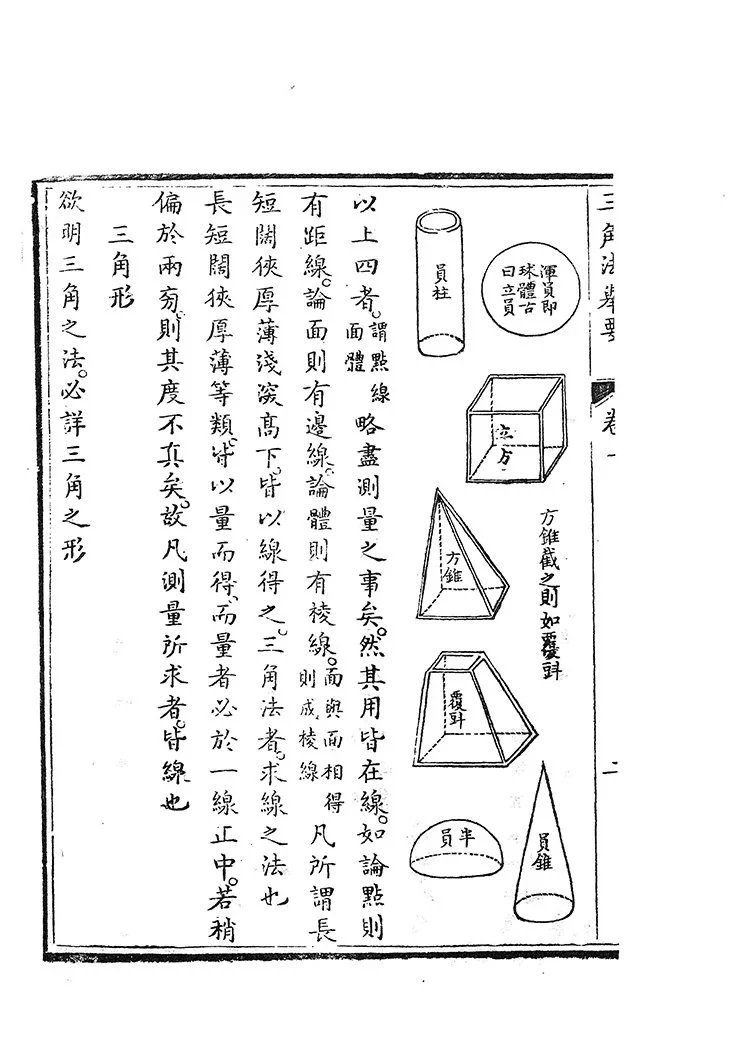 三角法舉要 卷一
渾員即
球體古
曰立員
員柱
立方
方錐截之則如覆㪷
方錐
覆㪷
員錐
半員
以上四者。謂點線面體略盡測量之事矣。然其用皆在線。如論點則
有距線。論面則有邊線。論體則有棱線。面與面相得則成棱線凡所謂長
短闊狹厚薄淺深高下。皆以線得之。三角法者。求線之法也
長短闊狹厚薄等類。皆以量而得。而量者必於一線正中。若稍
偏於兩旁。則其度不真矣。故凡測量所求者。皆線也
三角形
欲明三角之法。必詳三角之形